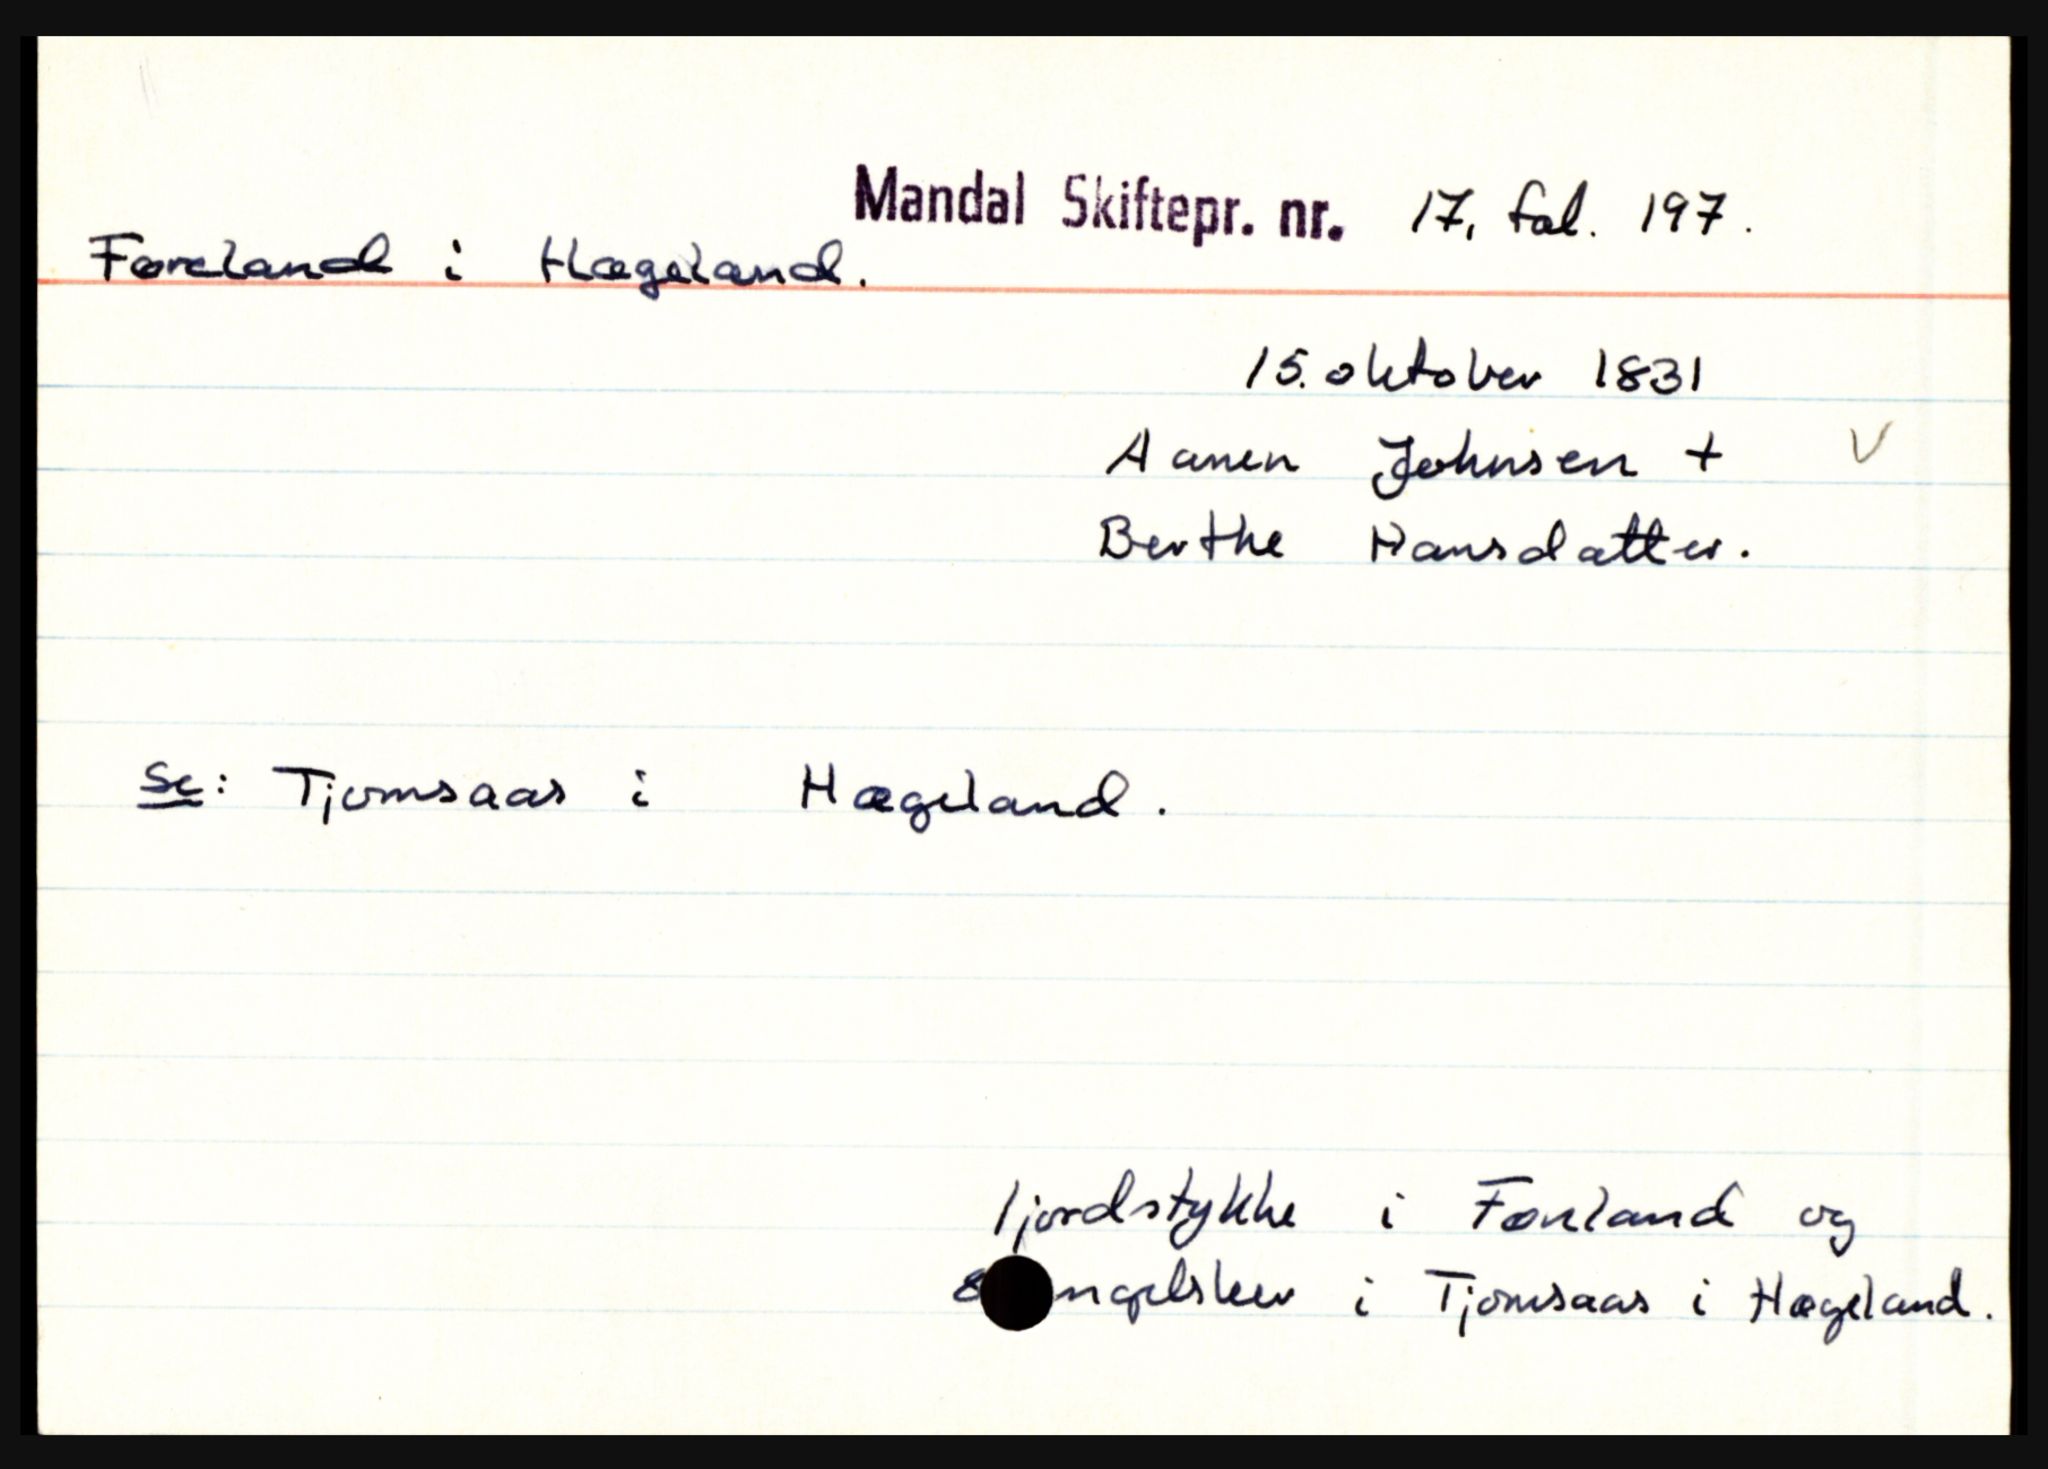 Mandal Skiftepr. nr. 17, fol. 197.
Føreland i Hægeland.
15. oktober 1831
Aanen Johnsen +
Berthe Hansdatter.
Se: Tjomsaas i Hægeland.
1 jordstykke i Førland og
8 engelsker i Tjomsaas i Hægeland.